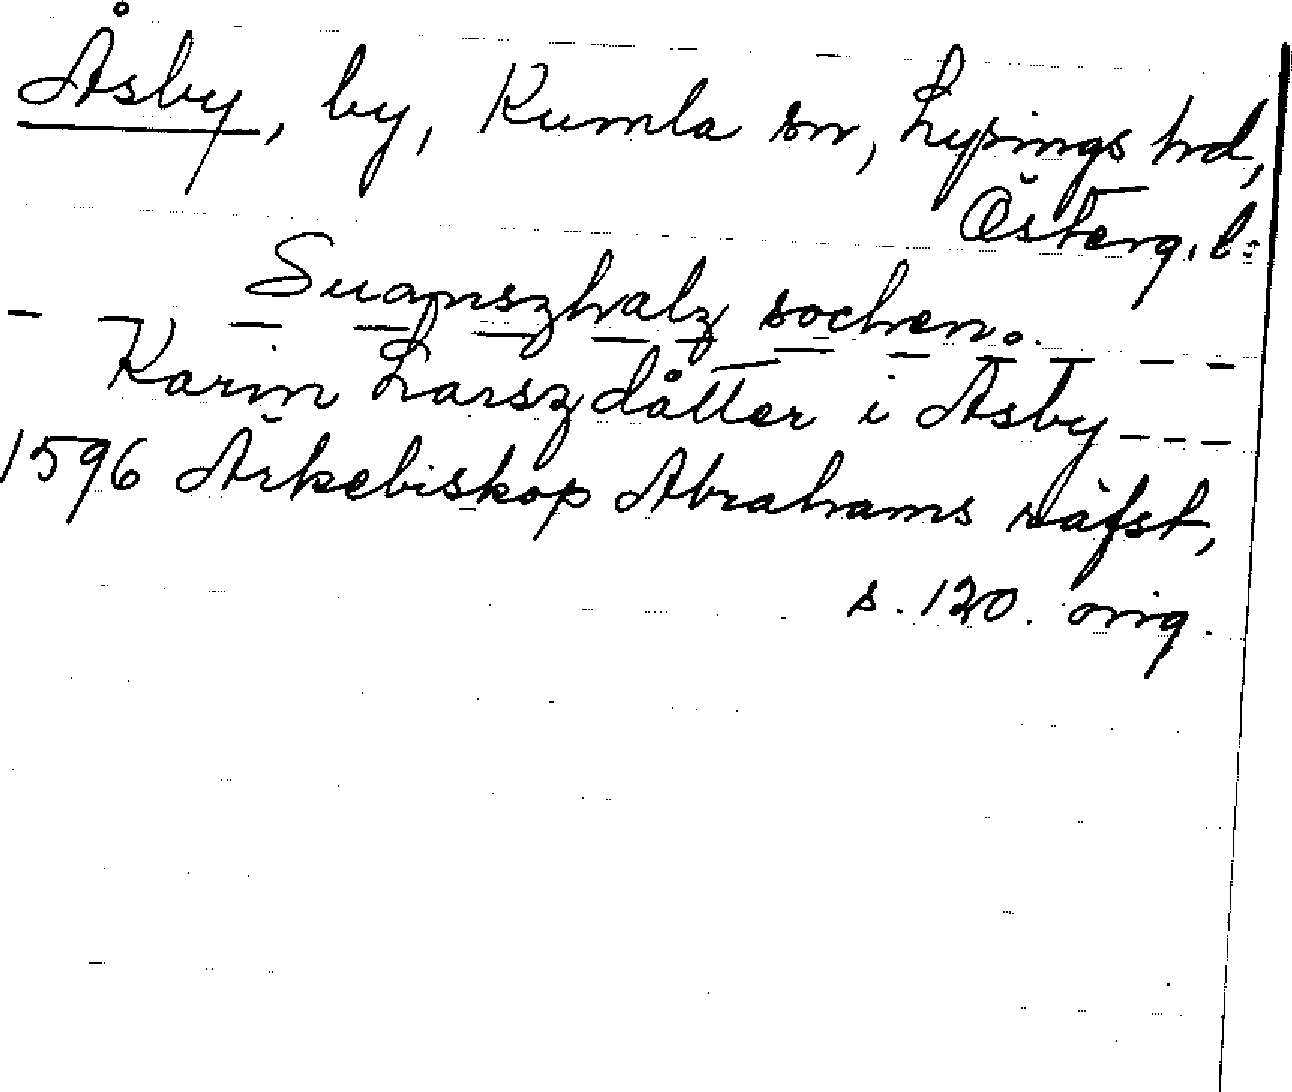 Åsby, by, Kumla sn, Lysings hrd,
Österg. l:
Suanszhalz sochen.
- - - - - - - - - - - - -
Karin Larszdåtter i Asby - - -
1596 Ärkebiskop Abrahams räfst,
s. 120. orig.